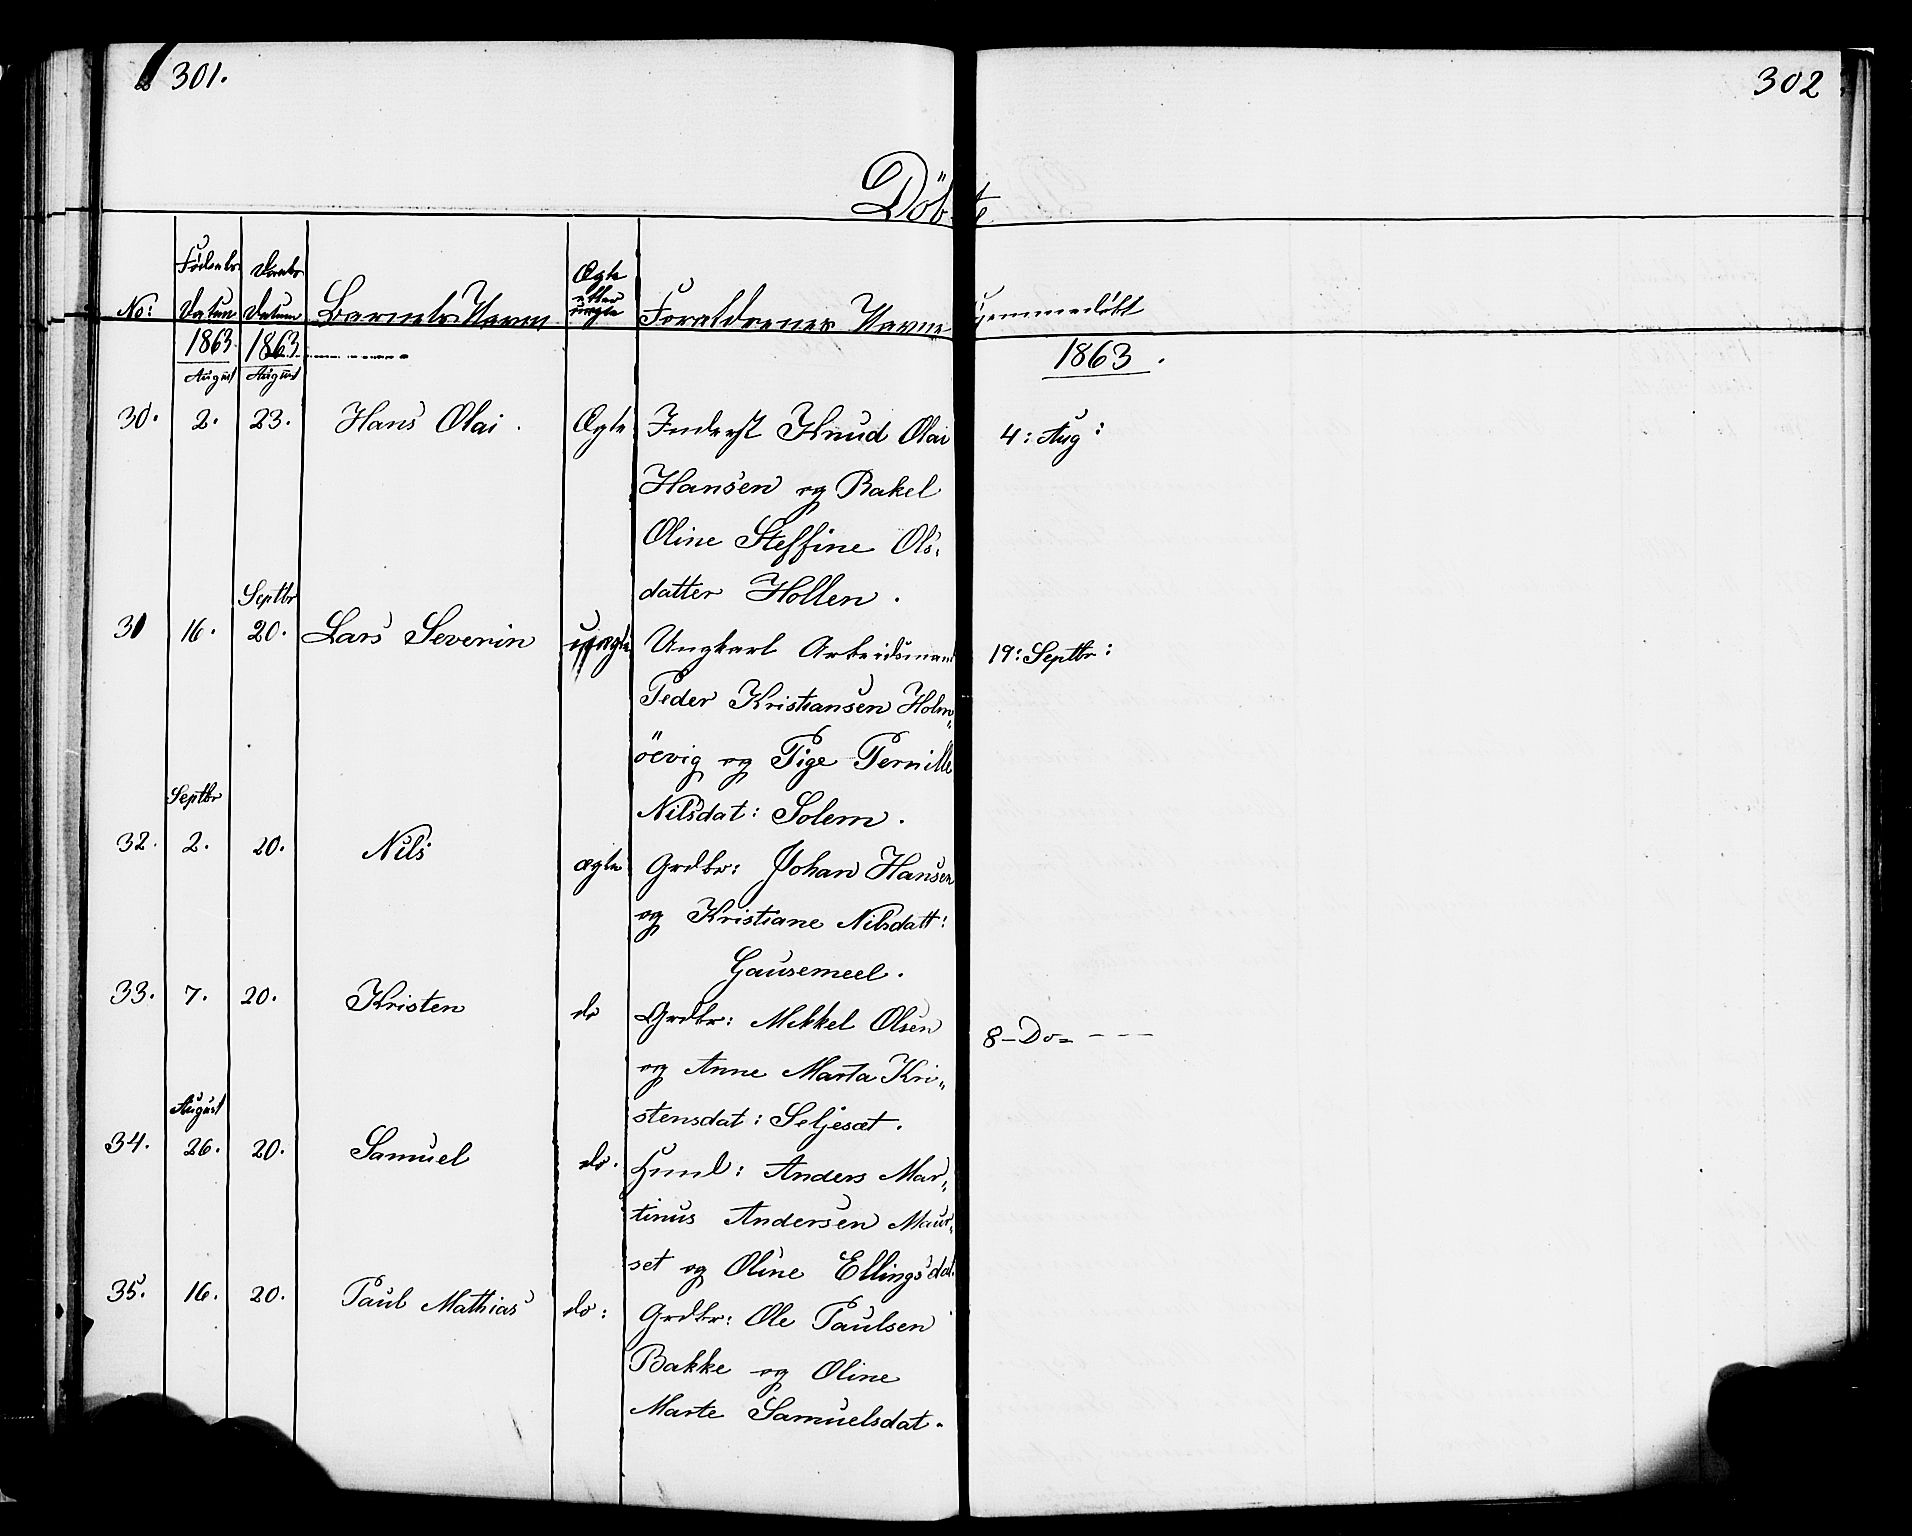 301.
302
Döbte
No:
Fødsels Datum
Daabs Datum
Barnets Navn
Ægte eller uægte
Forældrenes Navne
Hjemmedøbt
1863. 1863 1863.
August August
30. 2. 23. Hans Olai. Ægte Inderst Knud Olai 4: Aug:
Hansen og Rakel
Oline Steffine Ols:
datter Hollen.
Septbr
31 16. 20. Lars Severin uægte Ungkarl Arbeidsmand 19: Septbr:
Peder Kristiansen Holm„
öevig og Pige Pernille
Septbr
Nilsdat: Solem.
32. 2. 20. Nils ægte Grdbr: Johan Hansen
og Kristiane Nilsdatt:
Gausemeel.
33. 7. 20. Kristen do Grdbr: Mekkel Olsen 8 – Do – – – –
og Anne Marta Kri„
August
stensdat: Seljesæt.
34. 26. 20. Samuel do. Huusm: Anders Mar„
tinus Andersen Maur„
set og Oline Ellingsdat.
35. 16. 20. Paul Mathias do: Grdbr: Ole Paulsen
Bakke og Oline
Marte Samuelsdat.